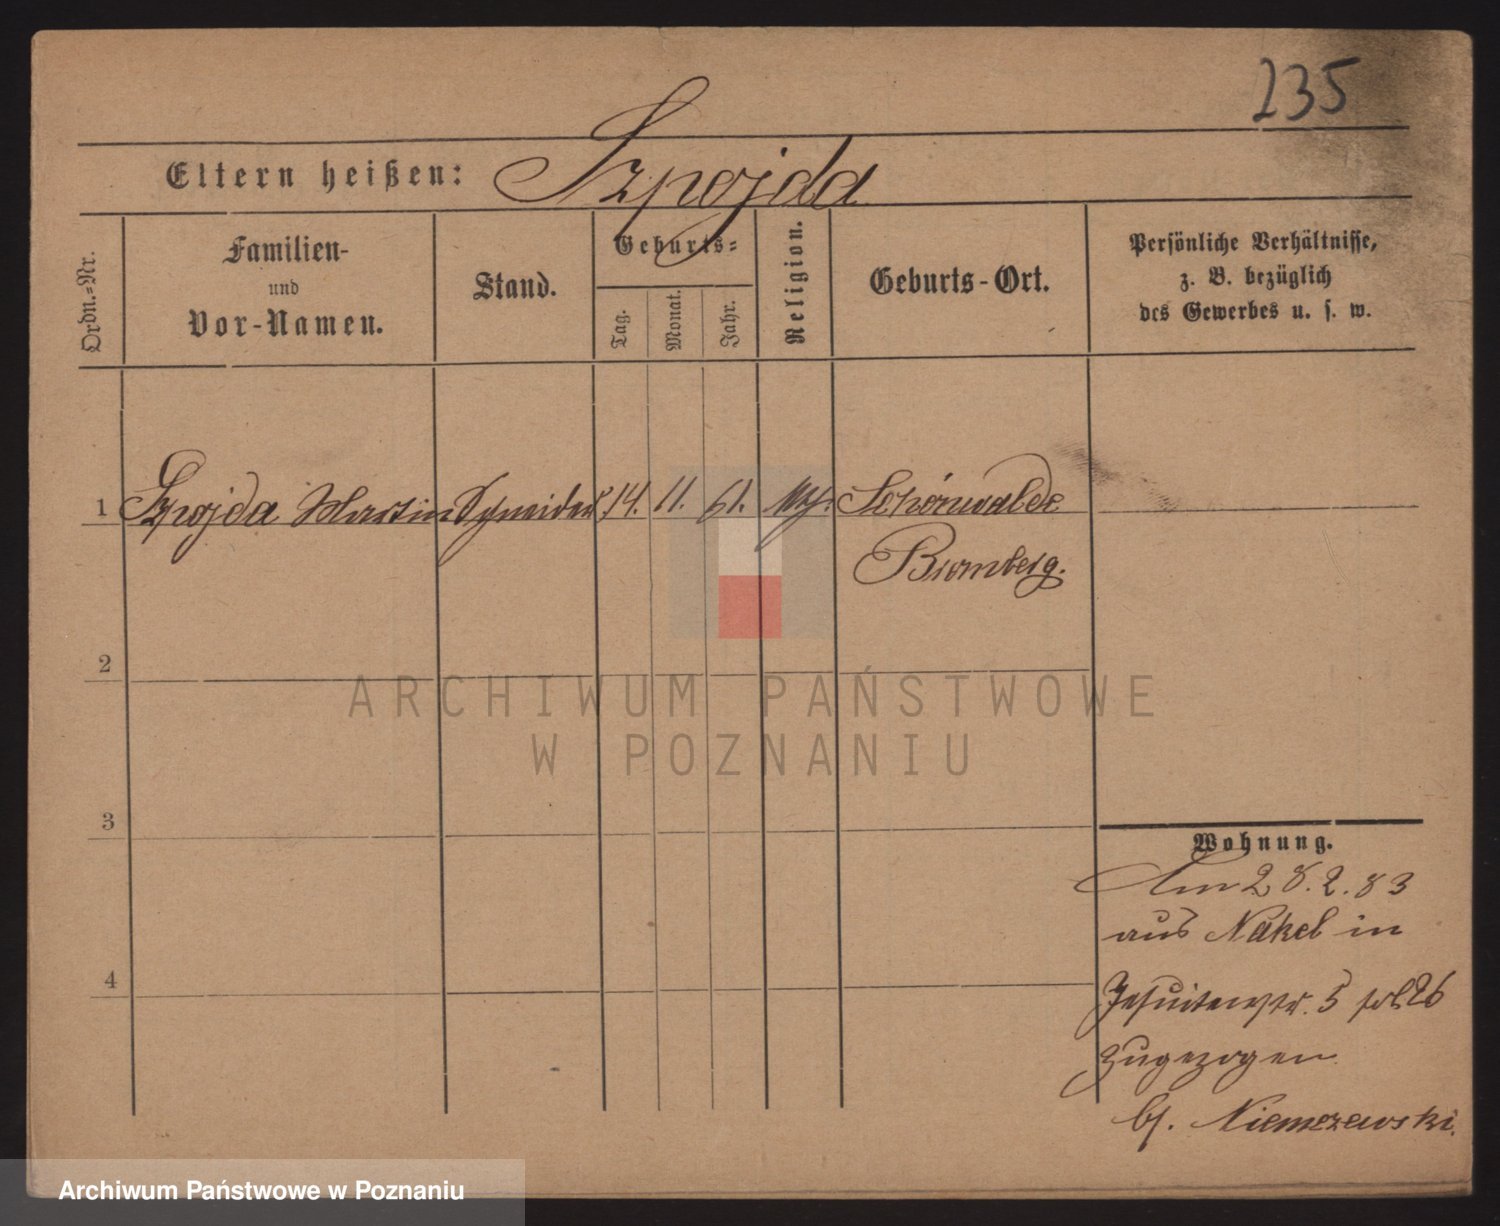 235
Eltern heißen: Szpojda
Ordn.-Nr.
Familien-
und
Vor-Namen.
Stand.
Geburts-
Tag.
Monat.
Jahr.
Religion.
Geburts-Ort.
Persönliche Verhältnisse,
z. B. bezüglich
des Gewerbes u. s. w.
1 Szpojda Martin Schneider 14. 11. 61. Schönwalde
Bromberg.
2
ARCHIWUM PAŃSTWOWE
W POZNANIU
3
Wohnung.
Am 28.2.83
aus Nakel in
4
Jesuitenstr. 5
zugezogen
bf. Niemczewski.
Archiwum Państwowe w Poznaniu